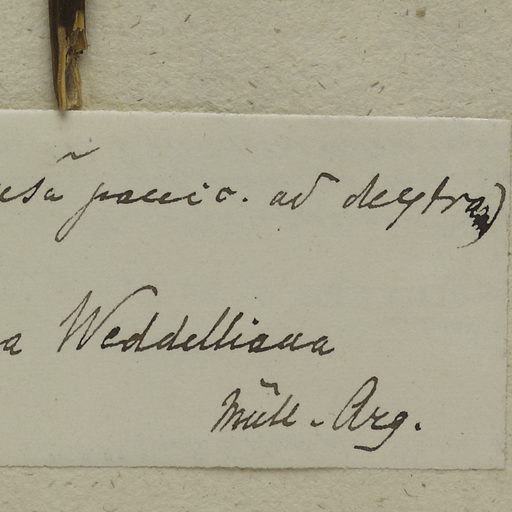 panic. ad dextra)
a Weddelliana
Müll-Arg.